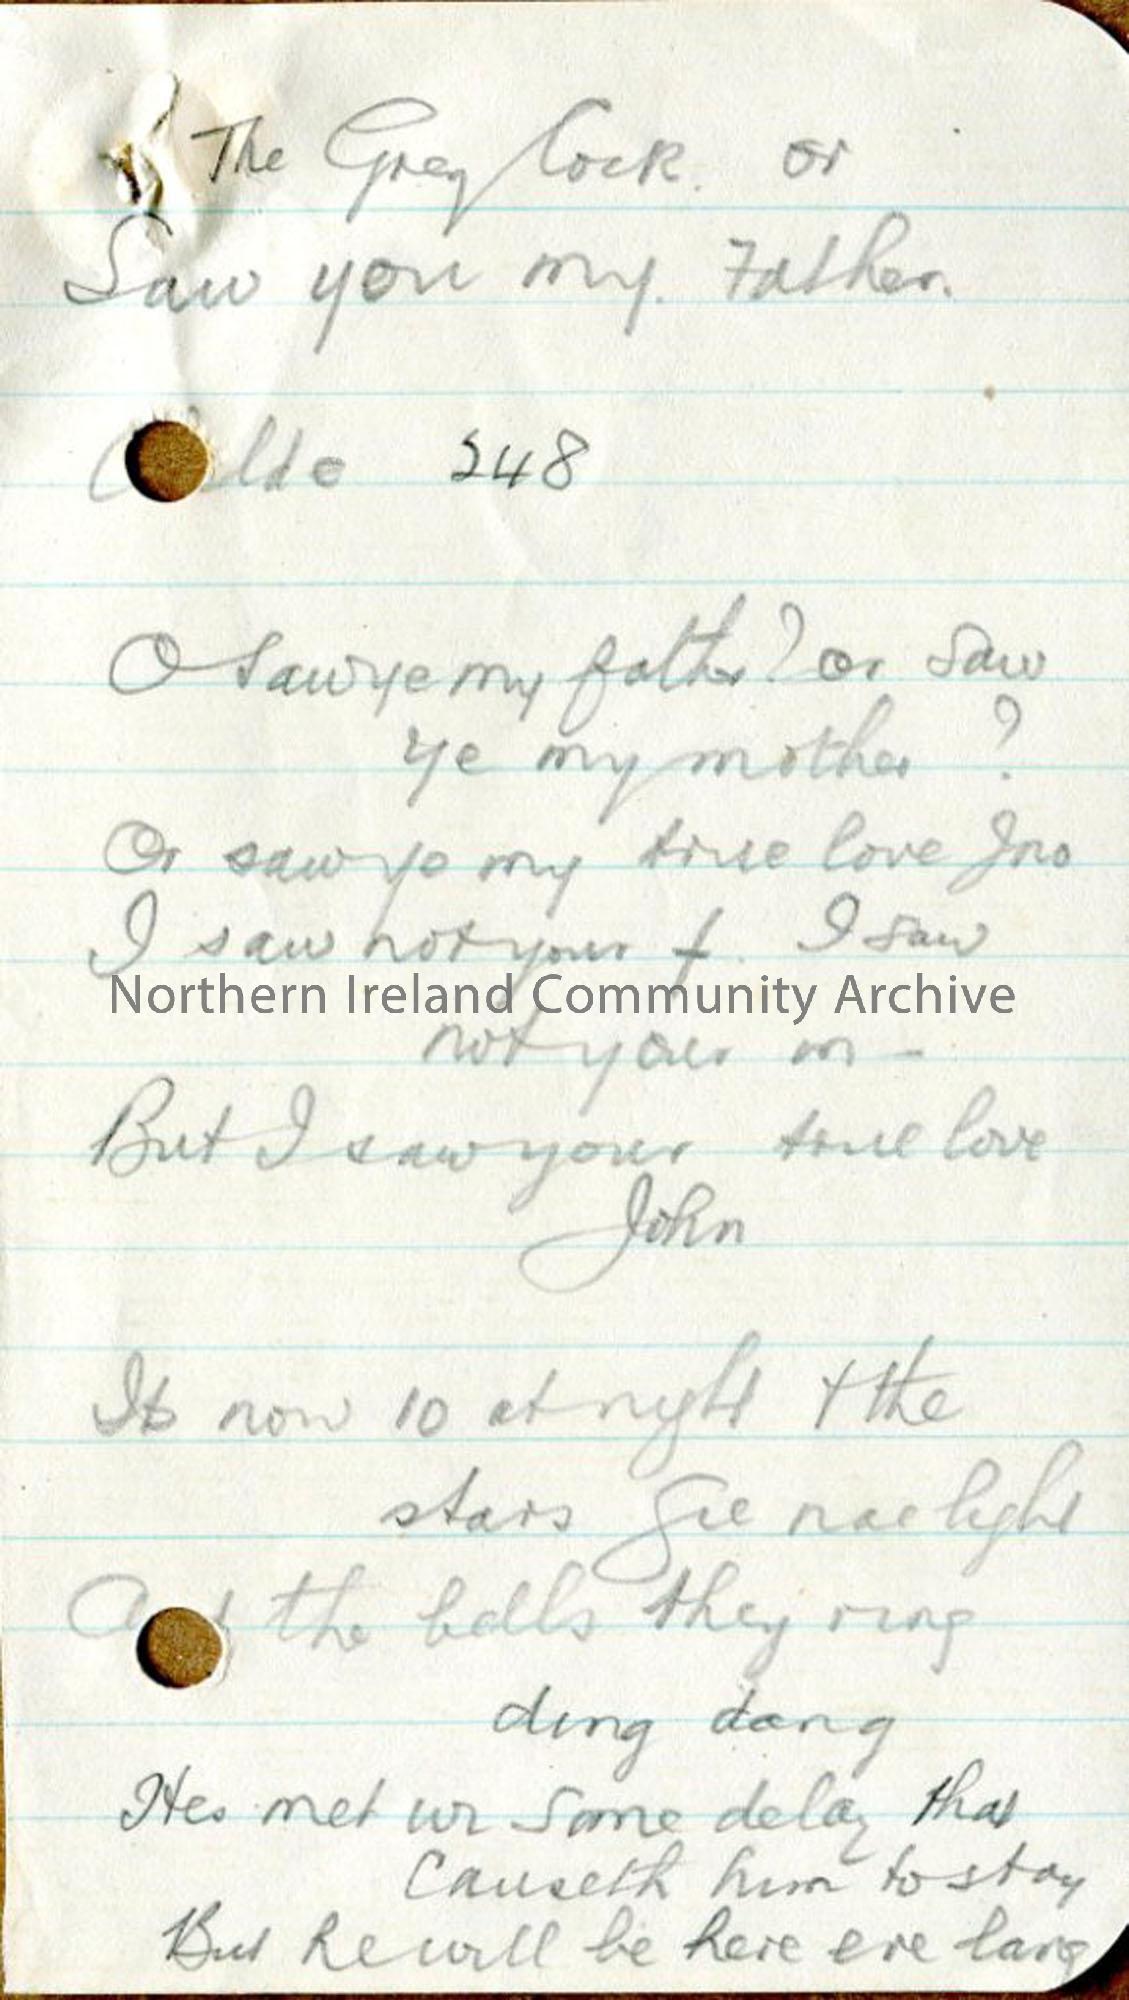 The Grey Cock. or
Saw you my. Father.
248
O saw ye my father? or saw
ye my mother ?
Or saw ye my true love Jno
I saw not your f. I saw
Northern Ireland Community Archive
not your m -
But I saw your true love
John
Its now 10 at night & the
stars gie nae light
And the bells they ring
ding dang
Hes met wi some delay that
causeth him to stay
But he will be here ere lang